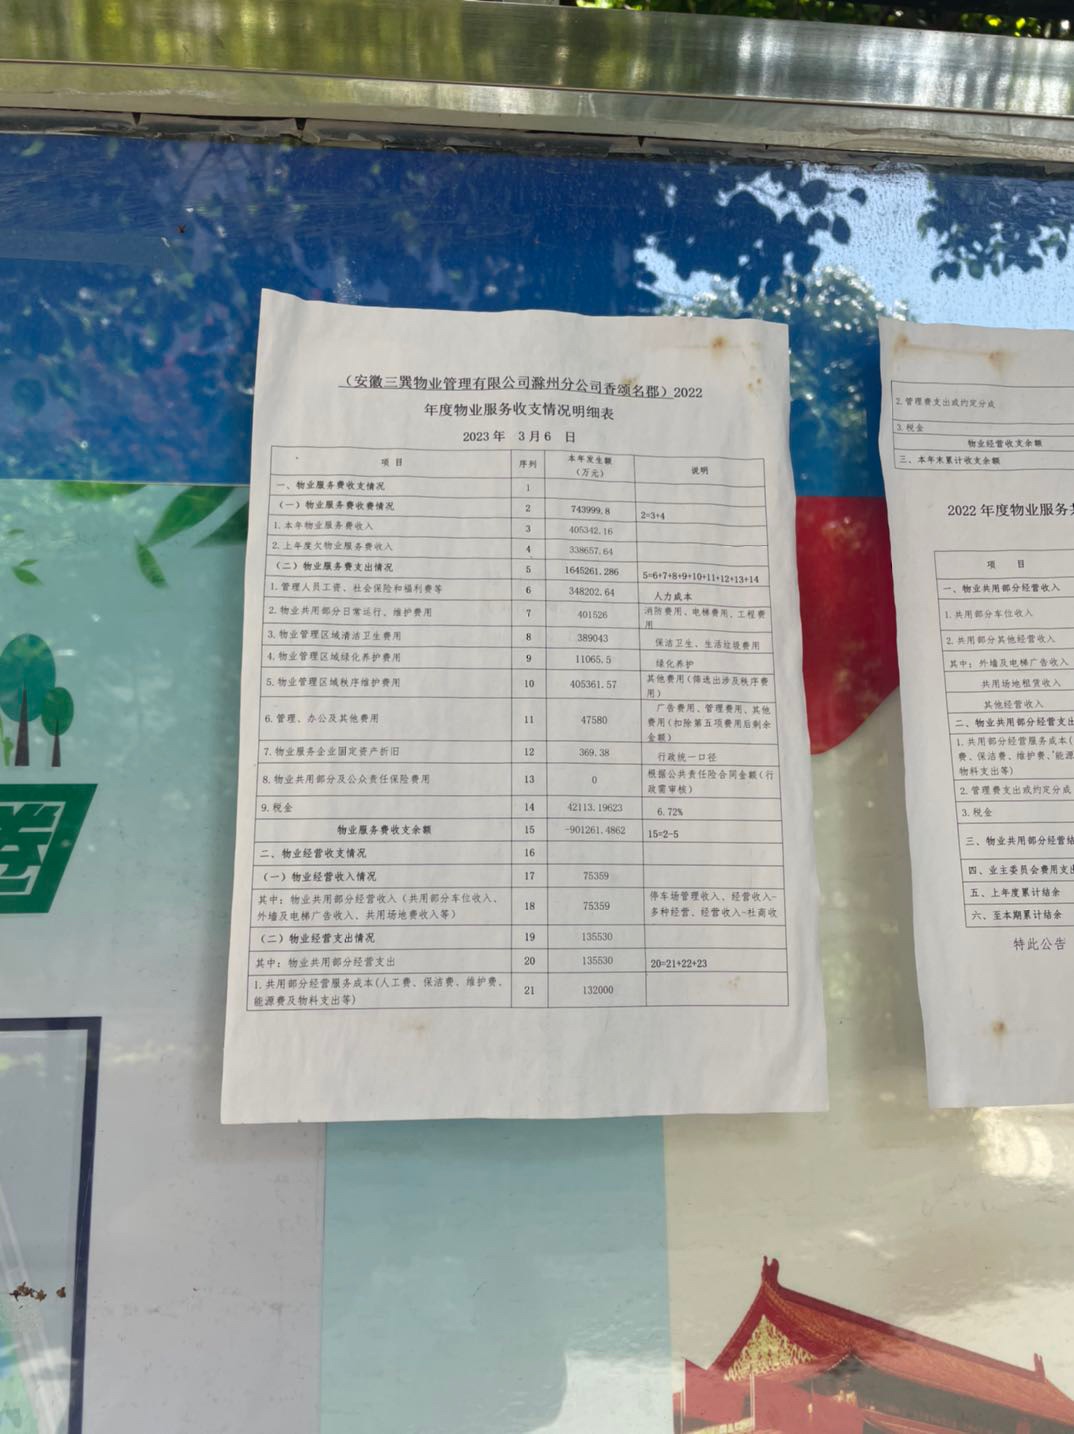 （安徽三巽物业管理有限公司滁州分公司香颂名郡）2022
年度物业服务收支情况明细表
2023 年 3 月 6 日
项 目 序列 本年发生额（万元） 说明
一、物业服务费收支情况 1
（一）物业服务费收费情况 2 743999.8 2=3+4
1.本年物业服务费收入 3 405342.16
2.上年度欠物业服务费收入 4 338657.64
（二）物业服务费支出情况 5 1645261.286 5=6+7+8+9+10+11+12+13+14
1.管理人员工资、社会保险和福利费等 6 348202.64 人力成本
2.物业共用部分日常运行、维护费用 7 401526 消防费用、电梯费用、工程费用
3.物业管理区域清洁卫生费用 8 389043 保洁卫生、生活垃圾费用
4.物业管理区域绿化养护费用 9 11065.5 绿化养护
5.物业管理区域秩序维护费用 10 405361.57 其他费用（筛选出涉及秩序费用）
6.管理、办公及其他费用 11 47580 广告费用、管理费用、其他费用（扣除第五项费用后剩余金额）
7.物业服务企业固定资产折旧 12 369.38 行政统一口径
8.物业共用部分及公众责任保险费用 13 0 根据公共责任险合同金额（行政需审核）
9.税金 14 42113.19623 6.72%
物业服务费收支余额 15 -901261.4862 15=2-5
二、物业经营收支情况 16
（一）物业经营收入情况 17 75359
其中：物业共用部分经营收入（共用部分车位收入、外墙及电梯广告收入、共用场地费收入等） 18 75359 停车场管理收入、经营收入-多种经营、经营收入-社商收
（二）物业经营支出情况 19 135530
其中：物业共用部分经营支出 20 135530 20=21+22+23
1.共用部分经营服务成本(人工费、保洁费、维护费、能源费及物料支出等） 21 132000
2.管理费支出或约定分成
3.税金
物业经营收支余额
三、本年末累计收支余额
2022 年度物业服务
项 目
一、物业共用部分经营收入
1.共用部分车位收入
2.共用部分其他经营收入
其中：外墙及电梯广告收入
共用场地租赁收入
其他经营收入
二、物业共用部分经营支出
1.共用部分经营服务成本(
费、保洁费、维护费、能源
物料支出等）
2.管理费支出或约定分成
3.税金
三、物业共用部分经营结
四、业主委员会费用支出
五、上年度累计结余
六、至本期累计结余
特此公告